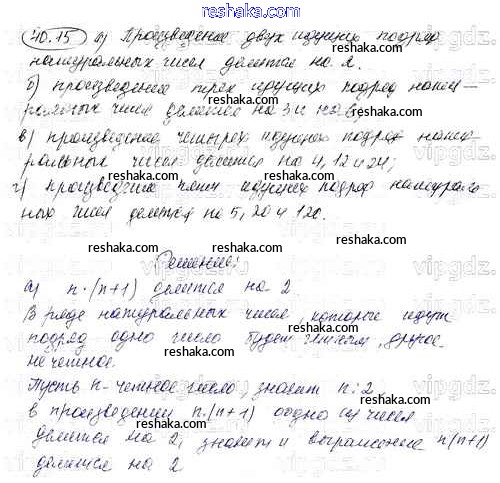 reshaka.com
40.15 а) Произведение двух идущих подряд
натуральных чисел делится на 2.
б) произведение трех идущих подряд нату-
ральных чисел делится на 3 и на 6;
в) произведение четырех идущих подряд нату-
ральных чисел делится на 4, 12 и 24;
г) произведение пяти идущих подряд натураль
ных чисел делится на 5, 20 и 120.
Решение:
а) n·(n+1) делится на 2
В ряде натуральных чисел, которые идут
подряд одно число будет четным, другое
нечетное.
Пусть n- четное число, значит n:2,
в произведении n·(n+1) одно из чисел
делится на 2, значит и выражение n(n+1)
делится на 2